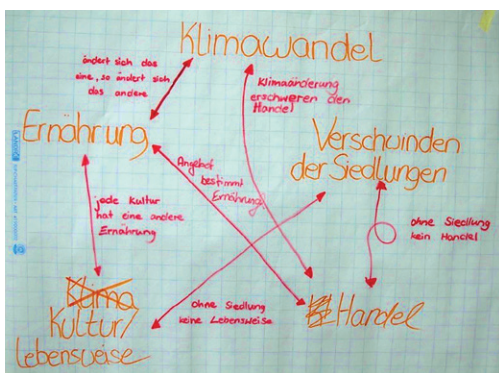 Klimawandel
ändert sich das
eine, so ändert sich
das andere
Klimaänderung
erschweren den
Handel
Ernährung
Verschwinden
der Siedlungen
Angebot
bestimmt
Ernährung
jede Kultur
hat eine andere
Ernährung
ohne Siedlung
kein Handel
Klima
Kultur/
Lebensweise
ohne Siedlung
keine Lebensweise
Handel